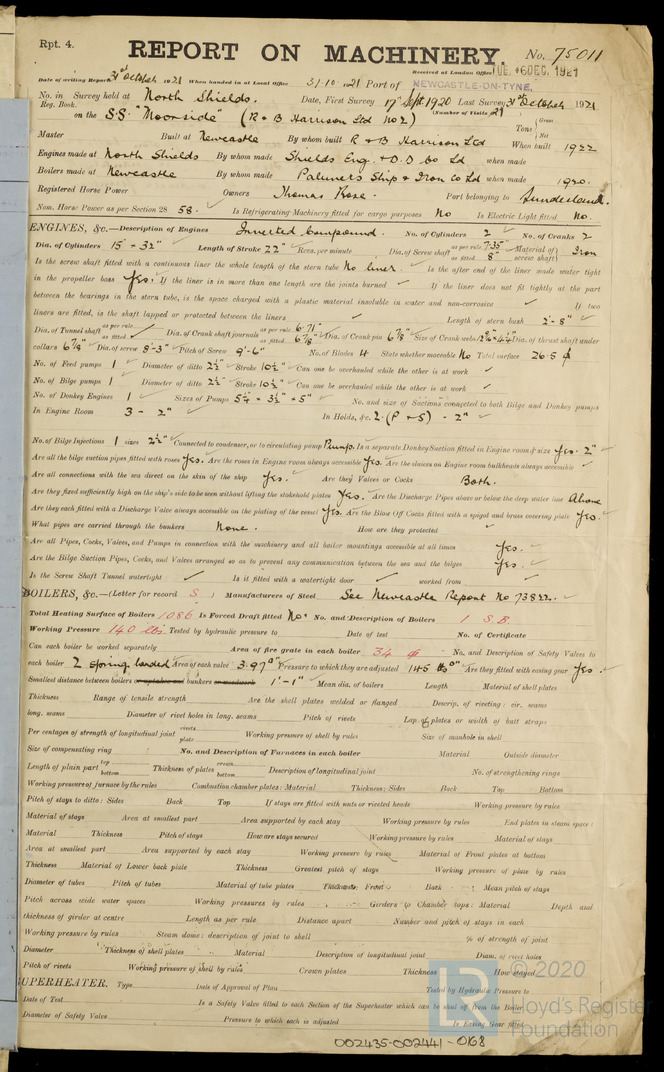 Rpt. 4.
REPORT ON MACHINERY. No. 75011
Received at London Office TUE. 6 DEC. 1921
Date of writing Report 31st October 1921 When handed in at Local Office 31.10.1921 Port of NEWCASTLE-ON-TYNE.
No. in Survey held at North Shields. Date, First Survey 17th Sept 1920 Last Survey 31st October 1921
Reg. Book. (Number of Visits 29)
on the S.S. "Moorside" (R & B Harrison Ltd No 2) Tons Gross Net
Master Built at Newcastle By whom built R & B Harrison Ltd When built 1922
Engines made at North Shields By whom made Shields Eng. & D.D Co Ltd when made
Boilers made at Newcastle By whom made Palmers Ship & Iron Co Ltd when made 1920.
Registered Horse Power Owners Thomas Rose. Port belonging to Sunderland.
Nom. Horse Power as per Section 28 58. Is Refrigerating Machinery fitted for cargo purposes No Is Electric Light fitted No.
ENGINES, &c.—Description of Engines Inverted Compound. No. of Cylinders 2 No. of Cranks 2
Dia. of Cylinders 15" - 32" Length of Stroke 22" Revs. per minute Dia. of Screw shaft as per rule 7.35" as fitted 8" Material of screw shaft Iron
Is the screw shaft fitted with a continuous liner the whole length of the stern tube No liner. Is the after end of the liner made water tight
in the propeller boss Yes. If the liner is in more than one length are the joints burned ✓ If the liner does not fit tightly at the part
between the bearings in the stern tube, is the space charged with a plastic material insoluble in water and non-corrosive ✓ If two
liners are fitted, is the shaft lapped or protected between the liners ✓ Length of stern bush 2'-8"
Dia. of Tunnel shaft as per rule as fitted ✓ Dia. of Crank shaft journals as per rule 6.71" as fitted 6 7/8" Dia. of Crank pin 6 7/8" Size of Crank webs Dia. of thrust shaft under
collars 6 7/8" Dia. of screw 8'-3" Pitch of Screw 9'-6" No. of Blades 4 State whether moveable No Total surface 26.5
No. of Feed pumps 1 Diameter of ditto 2 1/2" Stroke 10 1/2" Can one be overhauled while the other is at work ✓
No. of Bilge pumps 1 Diameter of ditto 2 1/2" Stroke 10 1/2" Can one be overhauled while the other is at work ✓
No. of Donkey Engines 1 Sizes of Pumps 5 1/4" - 3 1/2" × 5" No. and size of Suctions connected to both Bilge and Donkey pumps
In Engine Room 3 - 2" In Holds, &c. 2 (P & S) - 2"
No. of Bilge Injections 1 sizes 2 1/2" Connected to condenser, or to circulating pump Pump. Is a separate Donkey Suction fitted in Engine room & size Yes. 2"
Are all the bilge suction pipes fitted with roses Yes. Are the roses in Engine room always accessible Yes. Are the sluices on Engine room bulkheads always accessible ✓
Are all connections with the sea direct on the skin of the ship Yes. Are they Valves or Cocks Both.
Are they fixed sufficiently high on the ship's side to be seen without lifting the stokehold plates Yes. Are the Discharge Pipes above or below the deep water line Above
Are they each fitted with a Discharge Valve always accessible on the plating of the vessel Yes. Are the Blow Off Cocks fitted with a spigot and brass covering plate Yes.
What pipes are carried through the bunkers None. How are they protected ✓
Are all Pipes, Cocks, Valves, and Pumps in connection with the machinery and all boiler mountings accessible at all times Yes.
Are the Bilge Suction Pipes, Cocks, and Valves arranged so as to prevent any communication between the sea and the bilges Yes.
Is the Screw Shaft Tunnel watertight ✓ Is it fitted with a watertight door ✓ worked from ✓
BOILERS, &c.—(Letter for record S.) Manufacturers of Steel See Newcastle Report No 73822.
Total Heating Surface of Boilers 1086 Is Forced Draft fitted No. No. and Description of Boilers 1 S.B.
Working Pressure 140 lbs. Tested by hydraulic pressure to Date of test No. of Certificate
Can each boiler be worked separately Area of fire grate in each boiler 34 No. and Description of Safety Valves to
each boiler 2 Spring loaded Area of each valve 3.97" Pressure to which they are adjusted 145 lbs Are they fitted with easing gear Yes
Smallest distance between boilers or uptakes and bunkers or woodwork 1'-1" Mean dia. of boilers Length Material of shell plates
Thickness Range of tensile strength Are the shell plates welded or flanged Descrip. of riveting: cir. seams
long. seams Diameter of rivet holes in long. seams Pitch of rivets Lap of plates or width of butt straps
Per centages of strength of longitudinal joint rivets plate Working pressure of shell by rules Size of manhole in shell
Size of compensating ring No. and Description of Furnaces in each boiler Material Outside diameter
Length of plain part top bottom Thickness of plates crown bottom Description of longitudinal joint No. of strengthening rings
Working pressure of furnace by the rules Combustion chamber plates: Material Thickness: Sides Back Top Bottom
Pitch of stays to ditto: Sides Back Top If stays are fitted with nuts or riveted heads Working pressure by rules
Material of stays Area at smallest part Area supported by each stay Working pressure by rules End plates in steam space:
Material Thickness Pitch of stays How are stays secured Working pressure by rules Material of stays
Area at smallest part Area supported by each stay Working pressure by rules Material of Front plates at bottom
Thickness Material of Lower back plate Thickness Greatest pitch of stays Working pressure of plate by rules
Diameter of tubes Pitch of tubes Material of tube plates Thickness: Front Back Mean pitch of stays
Pitch across wide water spaces Working pressures by rules Girders to Chamber tops: Material Depth and
thickness of girder at centre Length as per rule Distance apart Number and pitch of stays in each
Working pressure by rules Steam dome: description of joint to shell % of strength of joint
Diameter Thickness of shell plates Material Description of longitudinal joint Diam. of rivet holes
Pitch of rivets Working pressure of shell by rules Crown plates Thickness How stayed
SUPERHEATER. Type Date of Approval of Plan Tested by Hydraulic Pressure to
Date of Test Is a Safety Valve fitted to each Section of the Superheater which can be shut off from the Boiler
Diameter of Safety Valve Pressure to which each is adjusted Is Easing Gear fitted
002435-002441-0168
© 2020
LR Lloyd's Register
Foundation